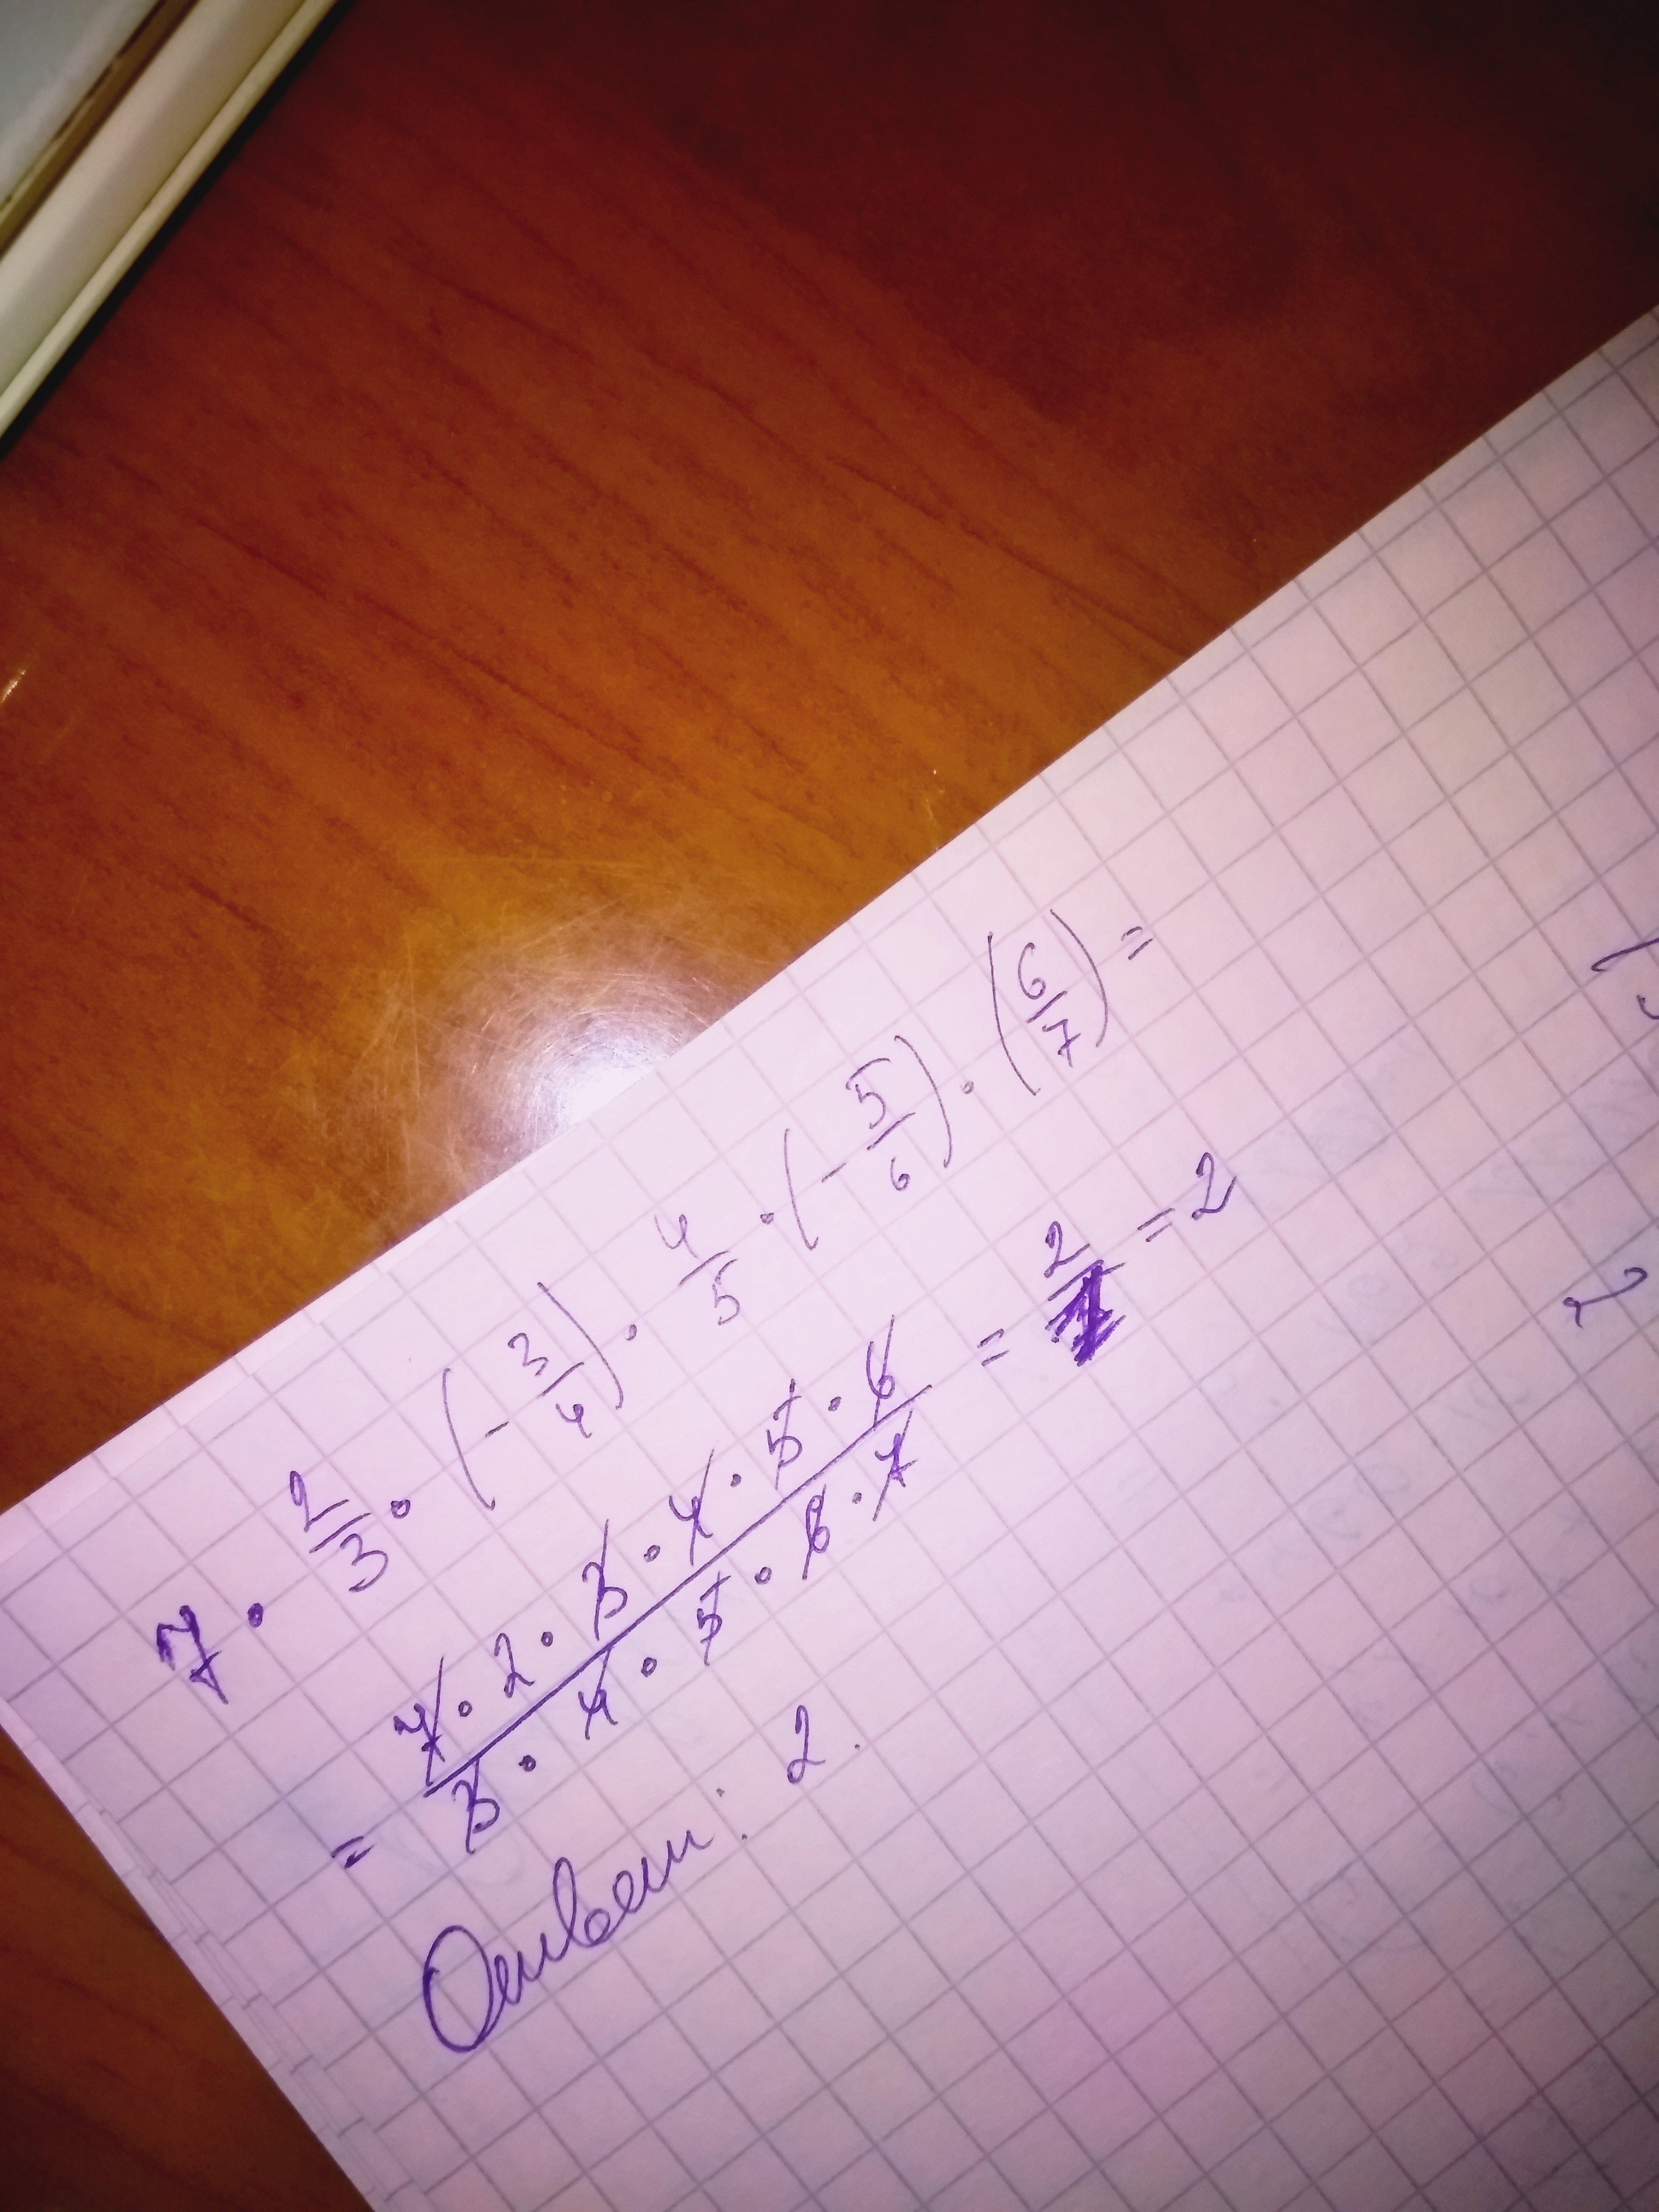 7 · 2/3 · (- 3/4) · 4/5 · (- 5/6) · (6/7) =
= 7 · 2 · 3 · 4 · 5 · 6 / 3 · 4 · 5 · 6 · 7 = 2/1 = 2
Ответ: 2.
2